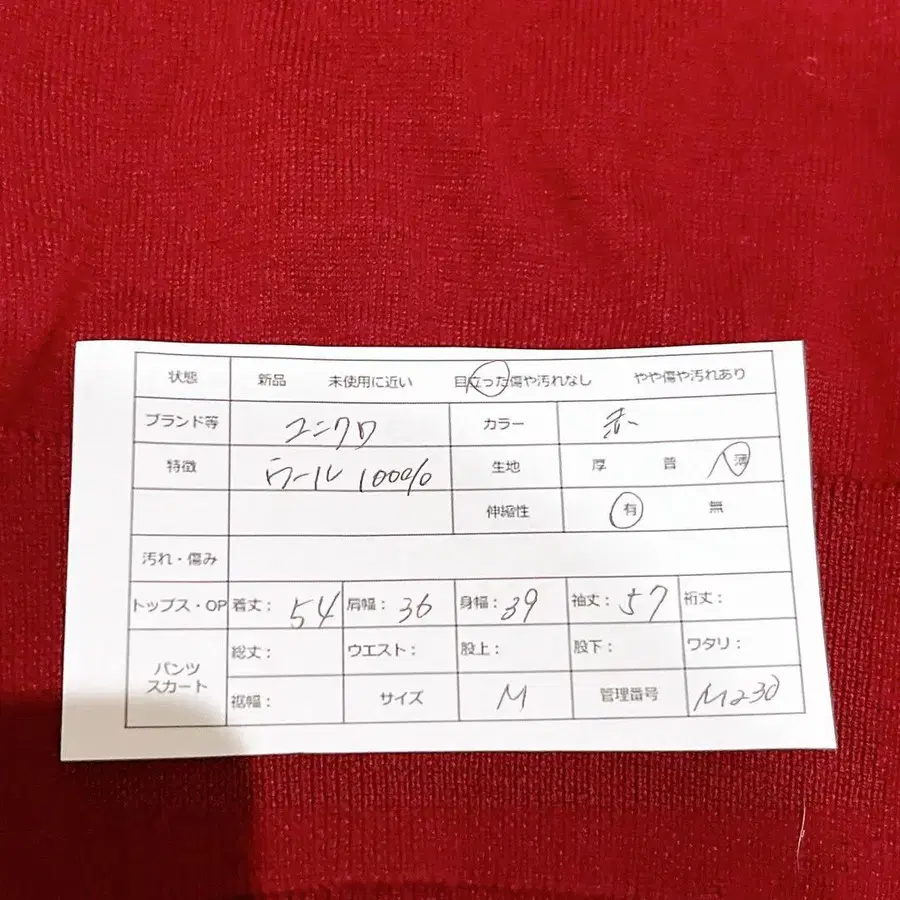 状態 新品 未使用に近い 目立った傷や汚れなし やや傷や汚れあり
ブランド等 ユニクロ カラー 赤
特徴 ウール 100% 生地 厚 普 薄
伸縮性 有 無
汚れ・傷み
トップス・OP 着丈: 54 肩幅: 36 身幅: 39 袖丈: 57 裄丈:
パンツ スカート 総丈: ウエスト: 股上: 股下: ワタリ:
裾幅: サイズ M 管理番号 M230